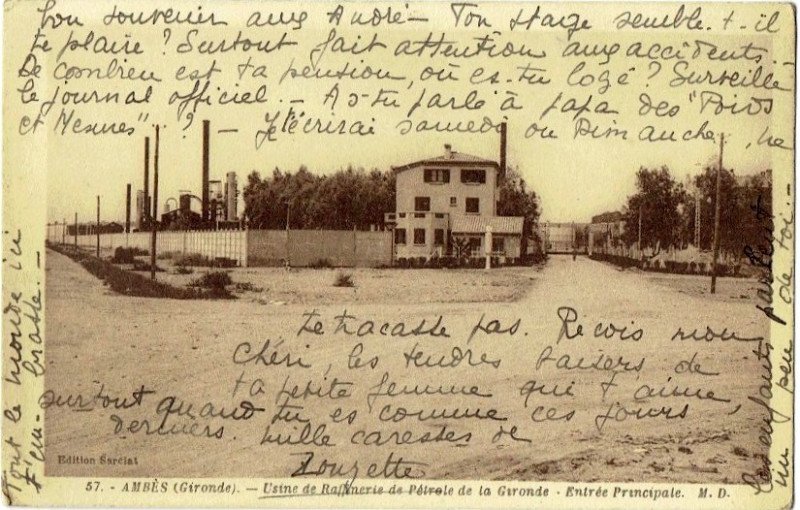 bon souvenir aux André - Ton stage semble-t-il
te plaire ? Surtout fait attention aux accidents.
De combien est ta pension, où es-tu logé ? Surveille
le journal officiel. - As-tu parlé à papa des "Poids
et Mesures" ? - Je t'écrirai samedi ou Dimanche, ne
te tracasse pas. Reçois mon
Chéri, les tendres baisers de
ta petite femme qui t'aime,
surtout quand tu es comme ces jours
derniers. Mille caresses de
Zouzette
Tout le monde ici
t'embrasse. -
Les enfants parlent
un peu de toi. -
Edition Sarciat
57. - AMBÈS (Gironde). - Usine de Raffinerie de Pétrole de la Gironde - Entrée Principale. M. D.